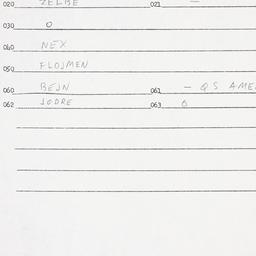 020 ZELBE 021 —
030 O
040 NEX
050 FLOJMEN
060 BEJN 061 — QS AME
062 JODRE 063 O